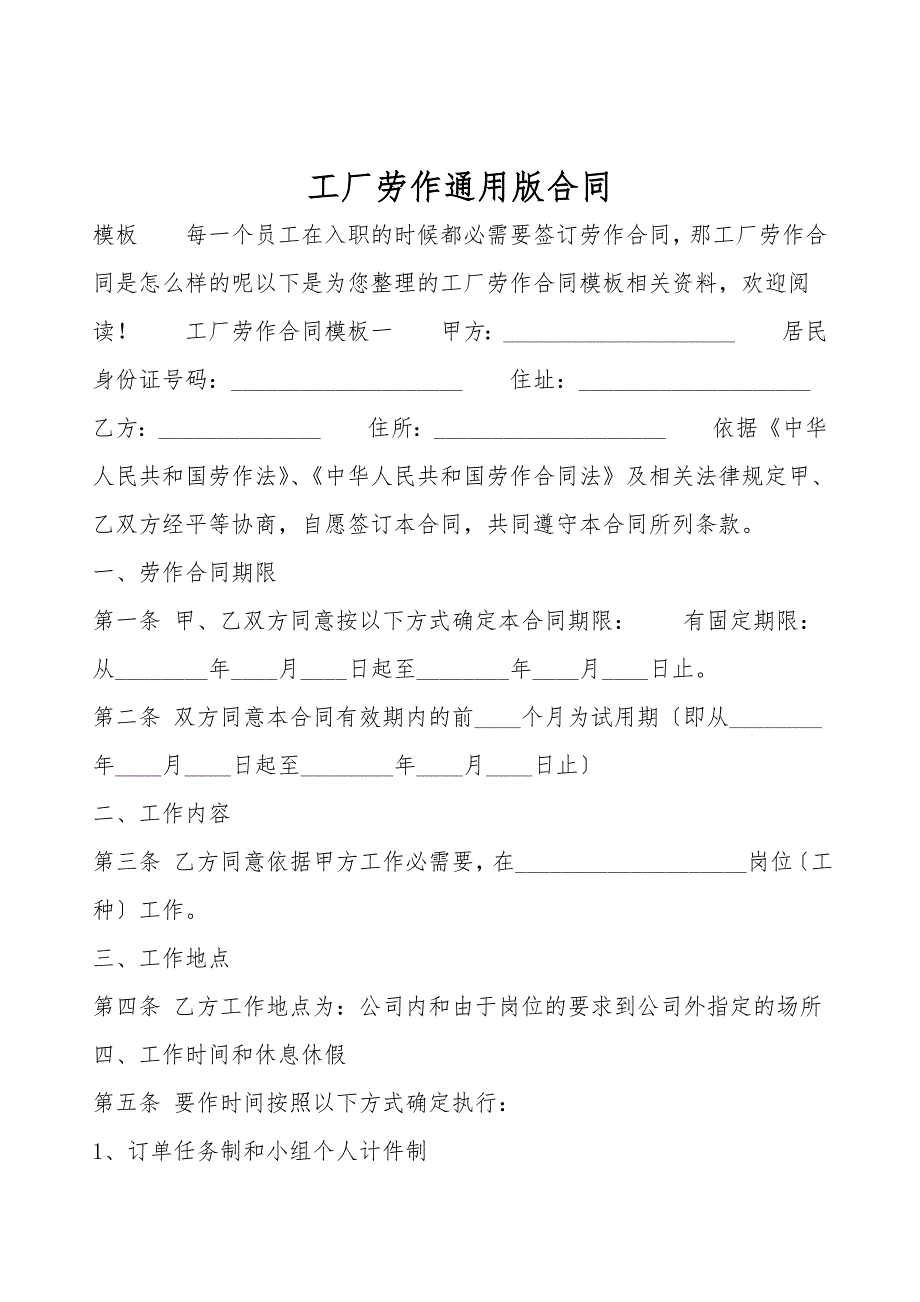 工厂劳作通用版合同
模板　　每一个员工在入职的时候都必需要签订劳作合同，那工厂劳作合
同是怎么样的呢以下是为您整理的工厂劳作合同模板相关资料，欢迎阅
读！　　工厂劳作合同模板一　　甲方：____________________　　居民
身份证号码：____________________　　住址：____________________
乙方：______________　　住所：____________________　　依据《中华
人民共和国劳作法》、《中华人民共和国劳作合同法》及相关法律规定甲、
乙双方经平等协商，自愿签订本合同，共同遵守本合同所列条款。
一、劳作合同期限
第一条 甲、乙双方同意按以下方式确定本合同期限：　　有固定期限：
从________年____月____日起至________年____月____日止。
第二条 双方同意本合同有效期内的前____个月为试用期〔即从________
年____月____日起至________年____月____日止〕
二、工作内容
第三条 乙方同意依据甲方工作必需要，在____________________岗位〔工
种〕工作。
三、工作地点
第四条 乙方工作地点为：公司内和由于岗位的要求到公司外指定的场所
四、工作时间和休息休假
第五条 要作时间按照以下方式确定执行：
1、订单任务制和小组个人计件制